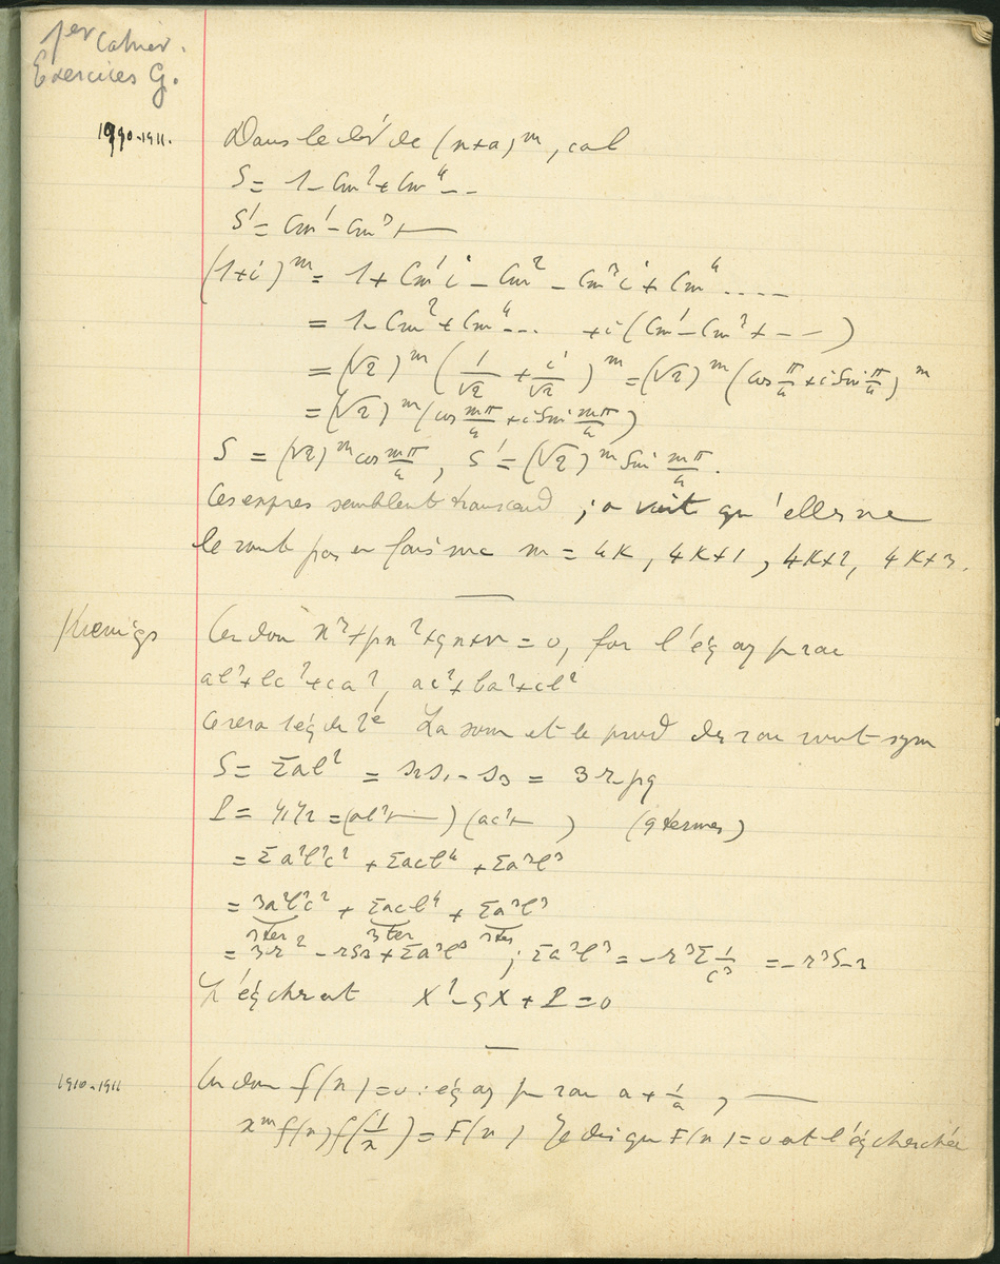 1er Cahier.
Exercices G.
1910-1911.
Dans le dév de (x+a)^m, cal
S = 1 - Cm² + Cm⁴ - - -
S' = Cm¹ - Cm³ + ——
(1+i)^m = 1 + Cm¹ i - Cm² - Cm³ i + Cm⁴ ....
= 1 - Cm² + Cm⁴ - .. + i (Cm¹ - Cm³ + - - —)
= (√2)^m (1/√2 + i/√2)^m = (√2)^m (cos π/4 + i Sin π/4)^m
= (√2)^m (cos mπ/4 + i Sin mπ/4)
S = (√2)^m cos mπ/4, S' = (√2)^m Sin mπ/4.
Ces expres semblent transcend ; o voit qu'elles ne
le sont pas en fais m = 4K, 4K+1, 4K+2, 4K+3.
Kœnigs
On don x³+px²+qx+r = 0, for l'éq ay p rac
ab²+bc²+ca², ac²+ba²+cb²
Ce sera 1 éq de 2e La som et le prod des rac sont sym
S = Σab² = s₂s₁ - s₃ = 3r - pq
P = y₁y₂ = (ab²+——) (ac²+—) (9 termes)
= Σa²b²c² + Σacb⁴ + Σa³b³
= 3a²b²c² + Σacb⁴ + Σa³b³
3 ter 3 ter 3 ter
= 3r² - rS₃ + Σa³b³ ; Σa³b³ = - r³Σ 1/c³ = - r³S-3
L'éq cher est X² - SX + P = 0
1910-1911
On don f(x) = 0 : éq ay p rac a + 1/a, ——
x^m f(x) f(1/x) = F(x) Je dis que F(x) = 0 est l'éq cherchée